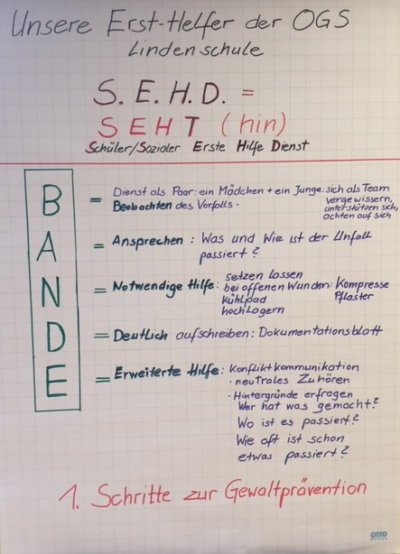 Unsere Erst-Helfer der OGS
Lindenschule
S. E. H. D. =
SEHT (hin)
Schüler/Sozialer Erste Hilfe Dienst
B = Dienst als Paar: ein Mädchen + ein Junge: sich als Team
Beobachten des Vorfalls. vergewissern,
unterstützen sich,
achten auf sich
A = Ansprechen : Was und Wie ist der Unfall
passiert?
N = Notwendige Hilfe: setzen lassen
bei offenen Wunden: Kompresse
Kühlpad Pflaster
hochlagern
D = Deutlich aufschreiben: Dokumentationsblatt
E = Erweiterte Hilfe: Konfliktkommunikation
· neutrales Zuhören
· Hintergründe erfragen
Wer hat was gemacht?
Wo ist es passiert?
Wie oft ist schon
etwas passiert?
1. Schritte zur Gewaltprävention
OTTO